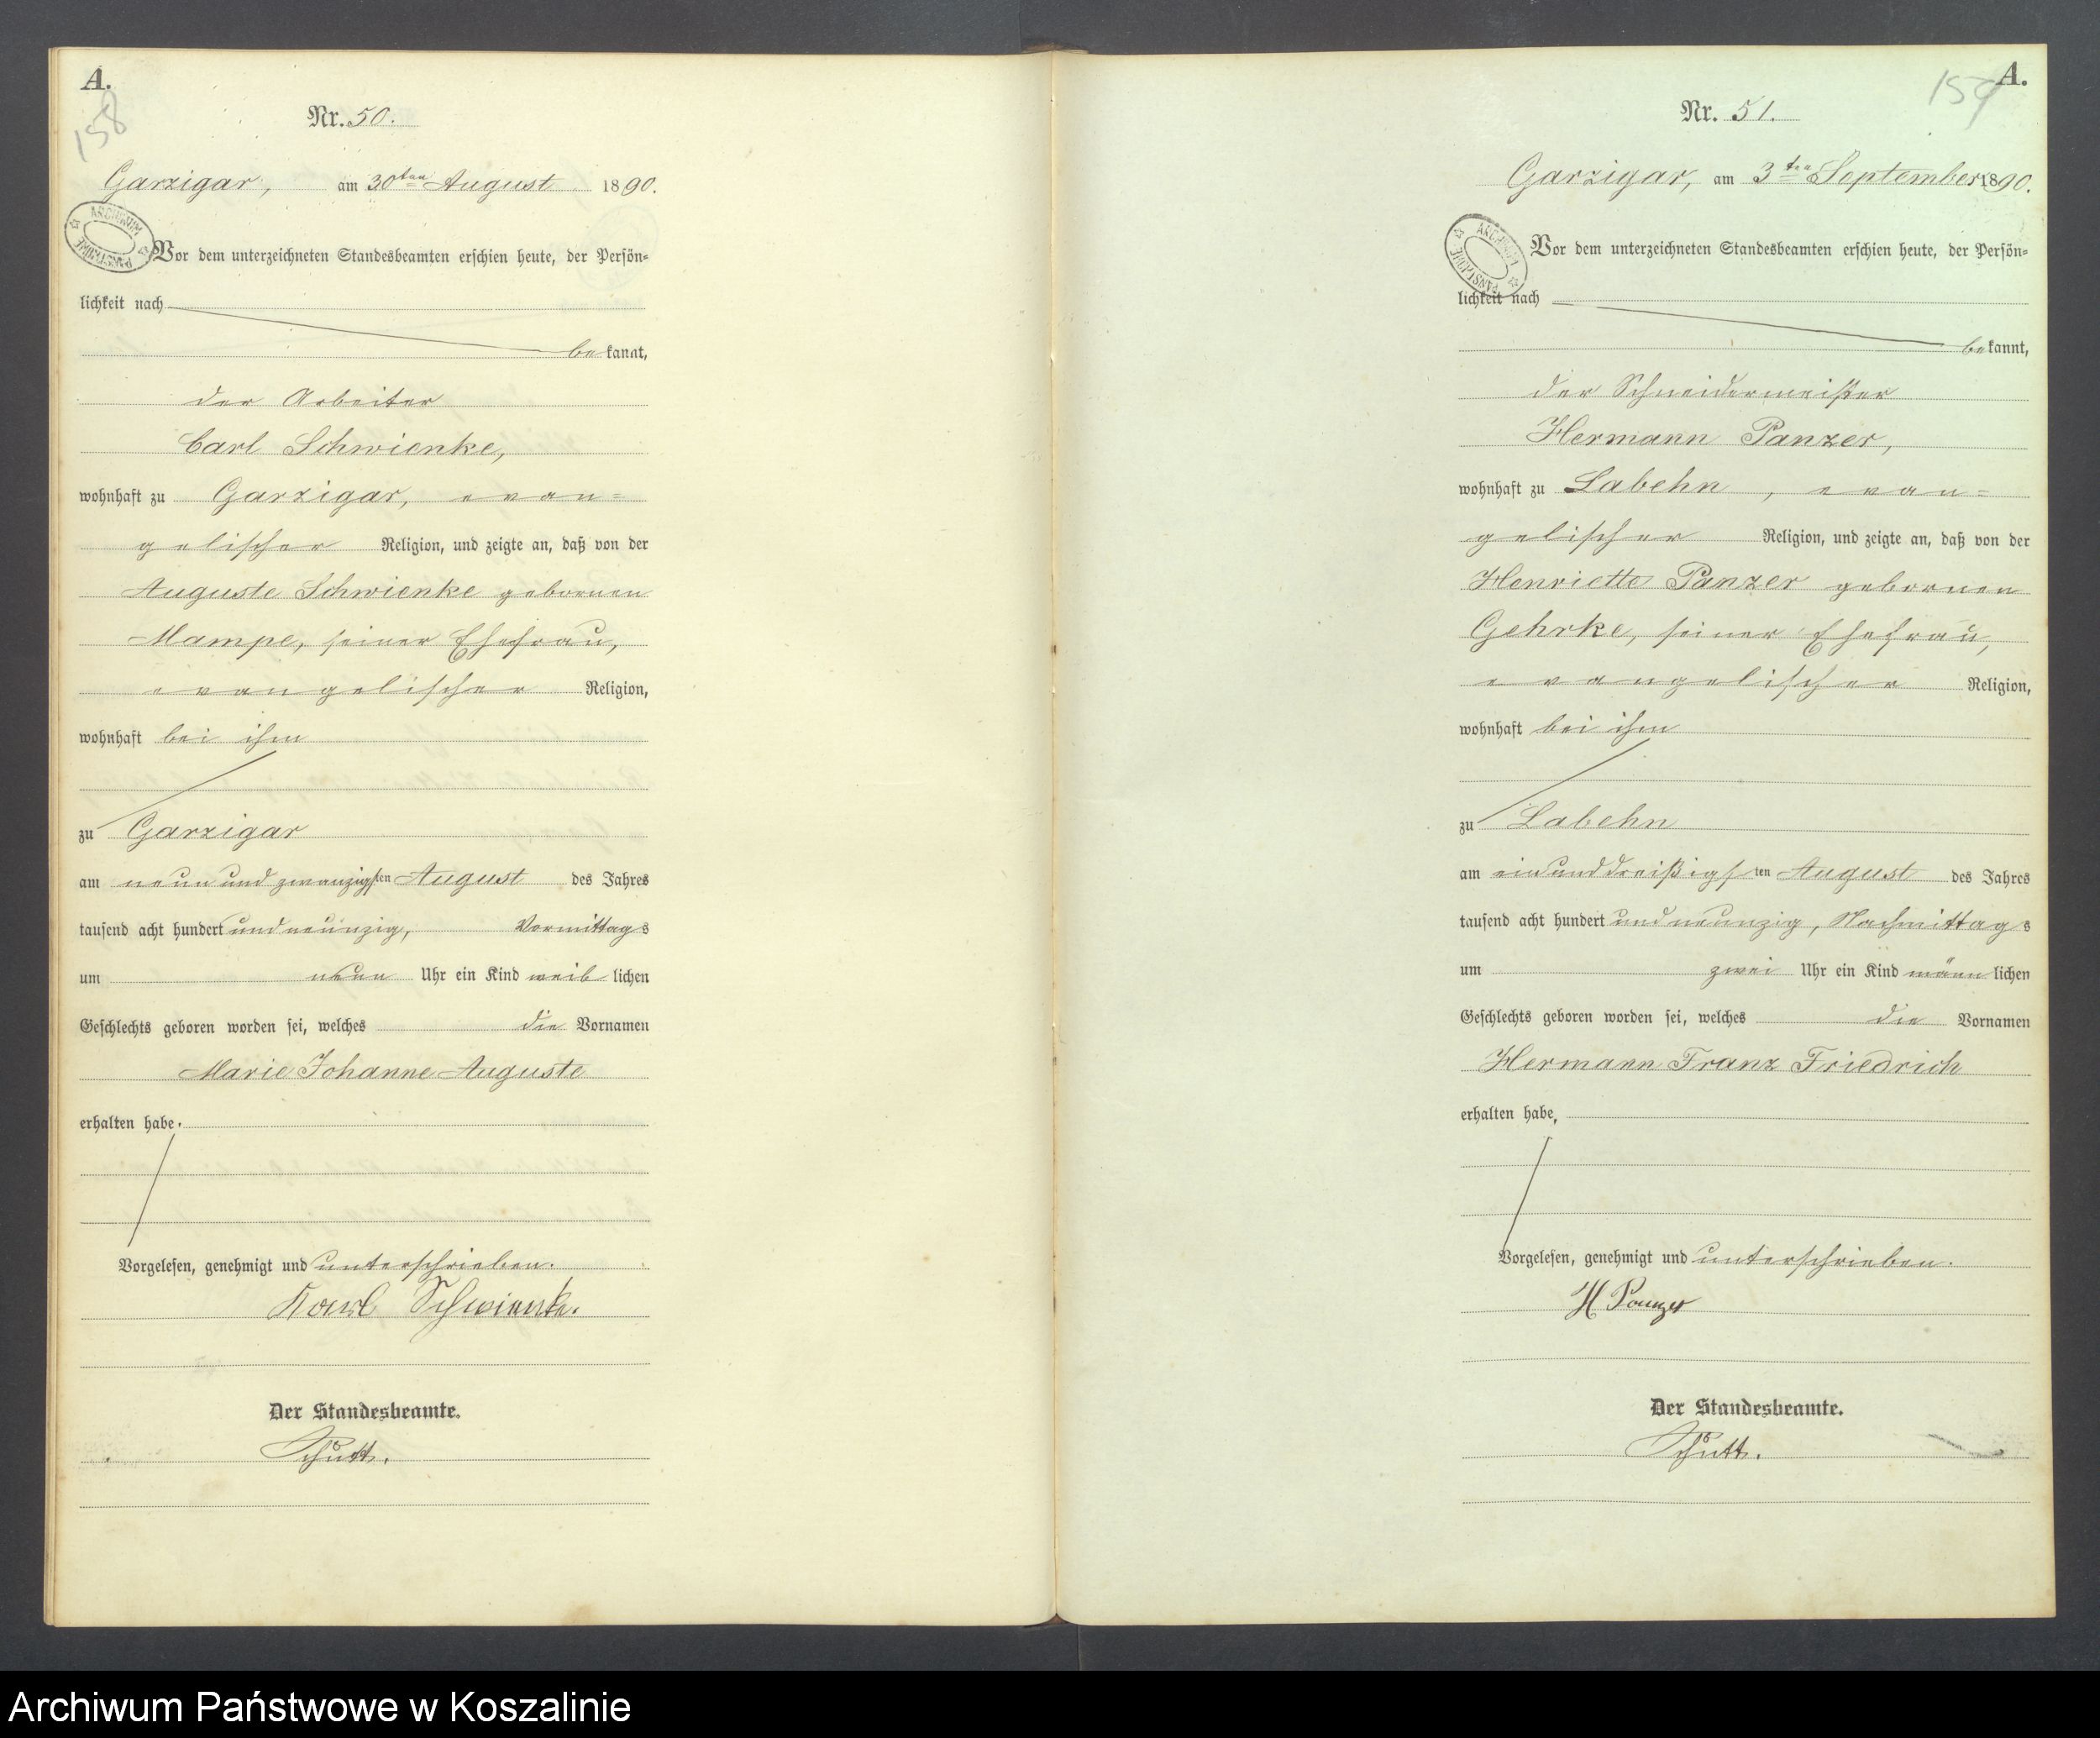 A.
158
Nr. 50.
Garzigar, am 30ten August 1890.
ARCHIWUM PAŃSTWOWE
Vor dem unterzeichneten Standesbeamten erschien heute, der Persön=
lichkeit nach
bekannt,
der Arbeiter
Carl Schwienke,
wohnhaft zu Garzigar, evan=
gelischer Religion, und zeigte an, daß von der
Auguste Schwienke gebornen
Mampe, seiner Ehefrau,
evangelischer Religion,
wohnhaft bei ihm
zu Garzigar
am neunundzwanzigsten August des Jahres
tausend acht hundert und neunzig, Vormittags
um neun Uhr ein Kind weiblichen
Geschlechts geboren worden sei, welches die Vornamen
Marie Johanne Auguste
erhalten habe.
Vorgelesen, genehmigt und unterschrieben.
Karl Schwienke.
Der Standesbeamte.
Schütt.
A.
159
Nr. 51.
Garzigar, am 3ten September 1890.
ARCHIWUM PAŃSTWOWE
Vor dem unterzeichneten Standesbeamten erschien heute, der Persön=
lichkeit nach
bekannt,
der Schneidermeister
Hermann Panzer,
wohnhaft zu Labehn, evan=
gelischer Religion, und zeigte an, daß von der
Henriette Panzer gebornen
Gehrke, seiner Ehefrau,
evangelischer Religion,
wohnhaft bei ihm
zu Labehn
am einunddreißigsten August des Jahres
tausend acht hundert und neunzig, Nachmittags
um zwei Uhr ein Kind männlichen
Geschlechts geboren worden sei, welches die Vornamen
Hermann Franz Friedrich
erhalten habe,
Vorgelesen, genehmigt und unterschrieben.
H Panzer
Der Standesbeamte.
Schütt.
Archiwum Państwowe w Koszalinie